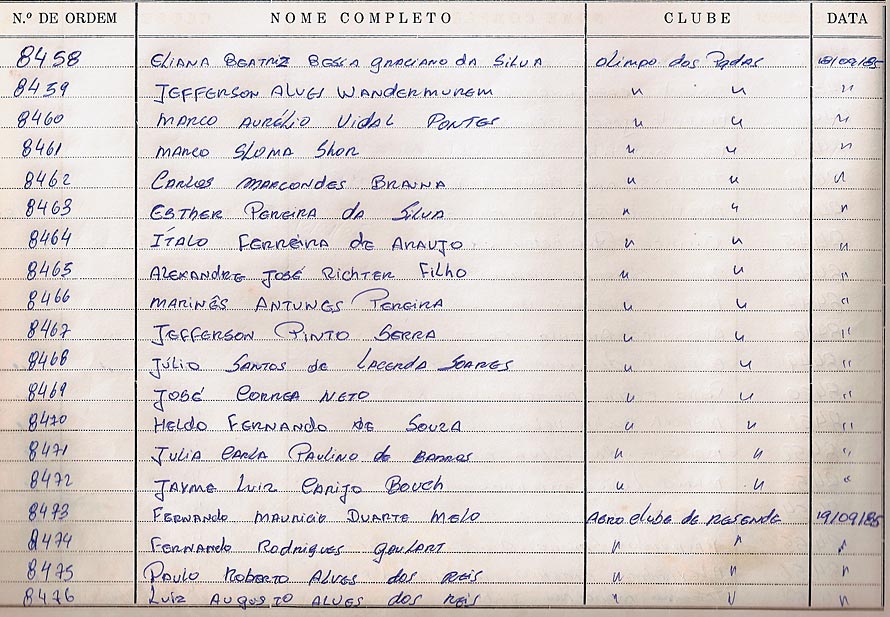 N.º DE ORDEM NOME COMPLETO CLUBE DATA
8458 ELIANA BEATRIZ BESSA GRACIANO DA SILVA OLIMPO DOS 18/09/85
8459 JEFFERSON ALVES WANDERMUREM " " "
8460 MARCO AURÉLIO VIDAL PONTES " " "
8461 MARCO SLOMA SHOR " " "
8462 CARLOS MARCONDES BRAUNA " " "
8463 ESTHER PEREIRA DA SILVA " " "
8464 ÍTALO FERREIRA DE ARAUJO " " "
8465 ALEXANDRE JOSÉ RICHTER FILHO " " "
8466 MARINÊS ANTUNES PEREIRA " " "
8467 JEFFERSON PINTO SERRA " " "
8468 JÚLIO SANTOS DE LACERDA SOARES " " "
8469 JOSÉ CORREA NETO " " "
8470 HELDO FERNANDO DE SOUZA " " "
8471 JULIA CARLA PAULINO DE BARROS " " "
8472 JAYME LUIZ CARIJO BOUCH " " "
8473 FERNANDO MAURICIO DUARTE MELO AERO CLUBE DE RESENDE 19/09/85
8474 FERNANDO RODRIGUES GOULART " " "
8475 PAULO ROBERTO ALVES DOS REIS " " "
8476 LUIZ AUGUSTO ALVES DOS REIS " " "